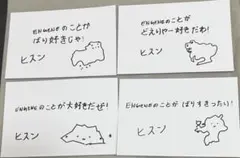 ENGENEのことが
ばり好きじゃ!
ヒスン
ENGENEのことが
どえりゃー好きだわ!
ヒスン
ENGENEのことが大好きだぜ!
ヒスン
ENGENEのことが ばりすきったい!
ヒスン